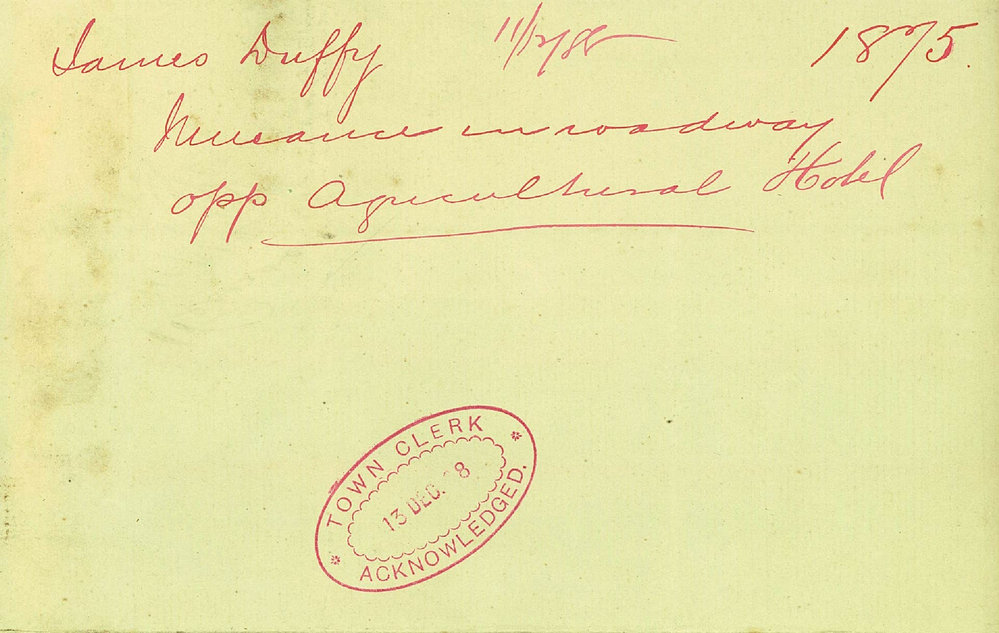 James Duffy 11/12/88 1875.
Nuisance in roadway
opp Agricultural Hotel
TOWN CLERK
13 DEC. 8
ACKNOWLEDGED.